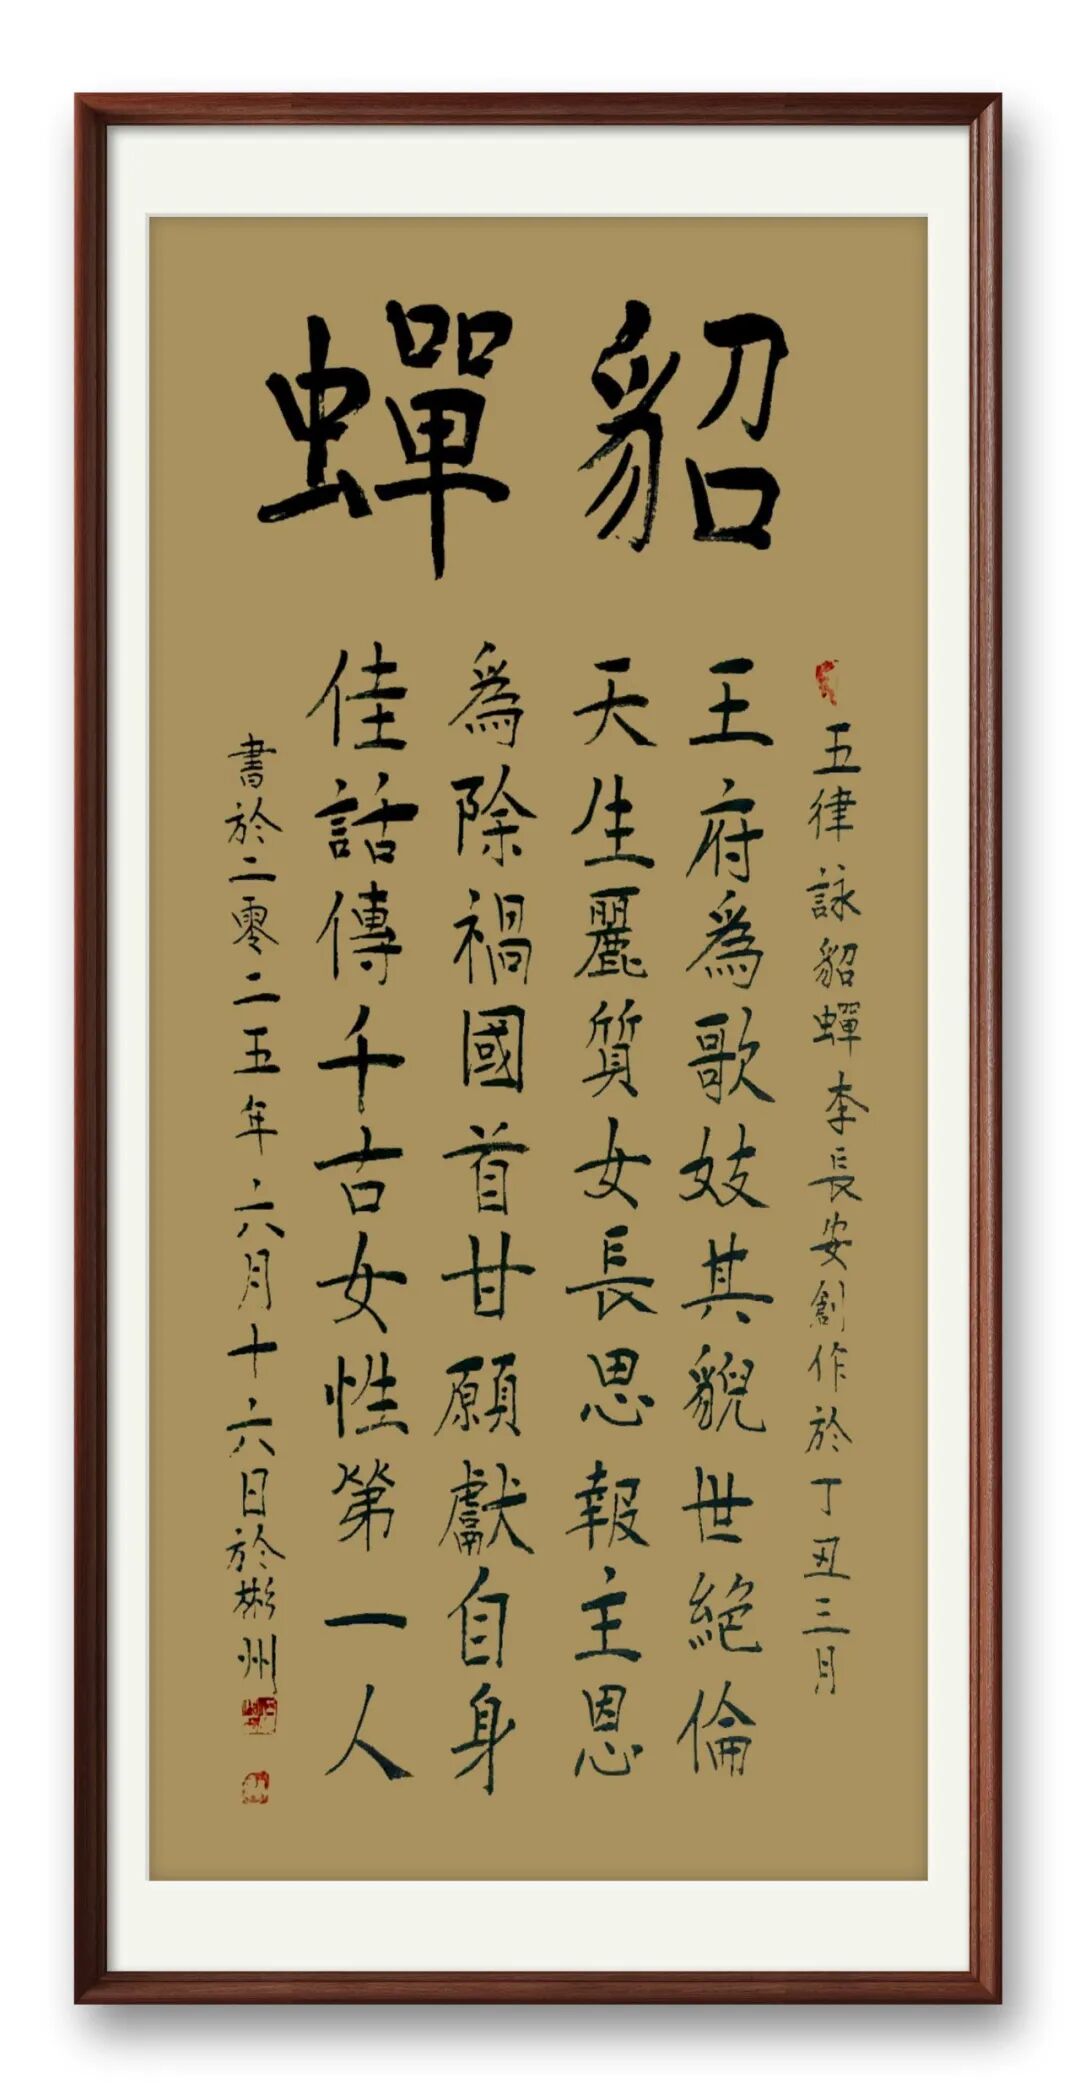 貂蟬
五律詠貂蟬李長安創作於丁丑三月
王府為歌妓其貌世絕倫
天生麗質女長思報主恩
為除禍國首甘願獻自身
佳話傳千古女性第一人
書於二零二五年六月十六日於彬州